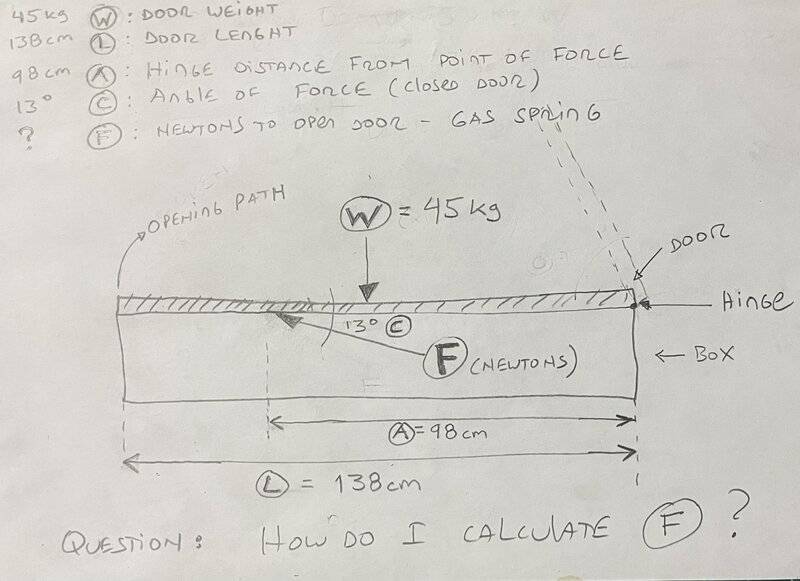 45kg W : DOOR WEIGHT
138cm L : DOOR LENGHT
98cm A : HINGE DISTANCE FROM POINT OF FORCE
13° C : ANGLE OF FORCE (CLOSED DOOR)
? F : NEWTONS TO OPEN DOOR - GAS SPRING
OPENING PATH
W = 45kg
DOOR
HINGE
13° C
F (NEWTONS)
BOX
A = 98cm
L = 138cm
QUESTION: HOW DO I CALCULATE F ?